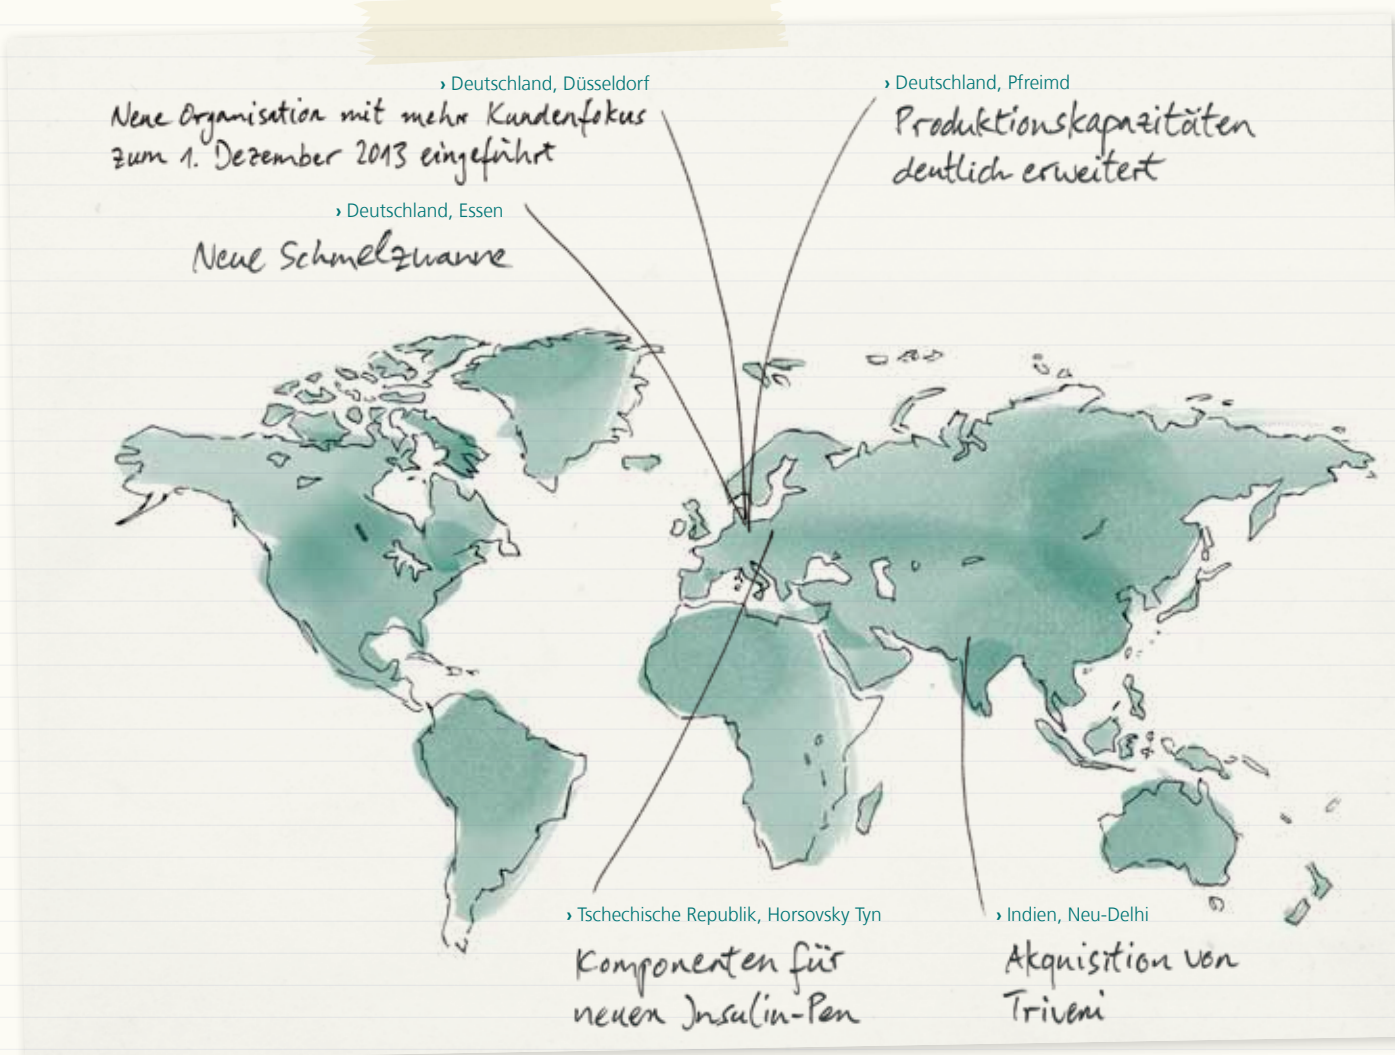 › Deutschland, Düsseldorf
Neue Organisation mit mehr Kundenfokus
zum 1. Dezember 2013 eingeführt
› Deutschland, Pfreimd
Produktionskapazitäten
deutlich erweitert
› Deutschland, Essen
Neue Schmelzwanne
› Tschechische Republik, Horsovsky Tyn
Komponenten für
neuen Insulin-Pen
› Indien, Neu-Delhi
Akquisition von
Triveni